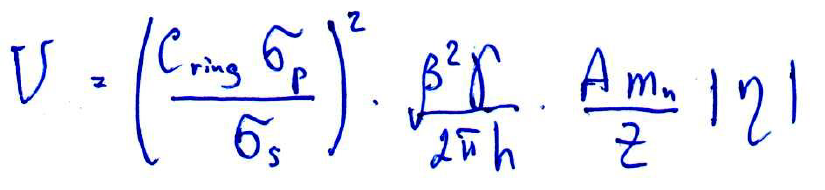 U = (C_ring σ_p / σ_s)² · β²γ / 2πh · A m_n / Z |η|